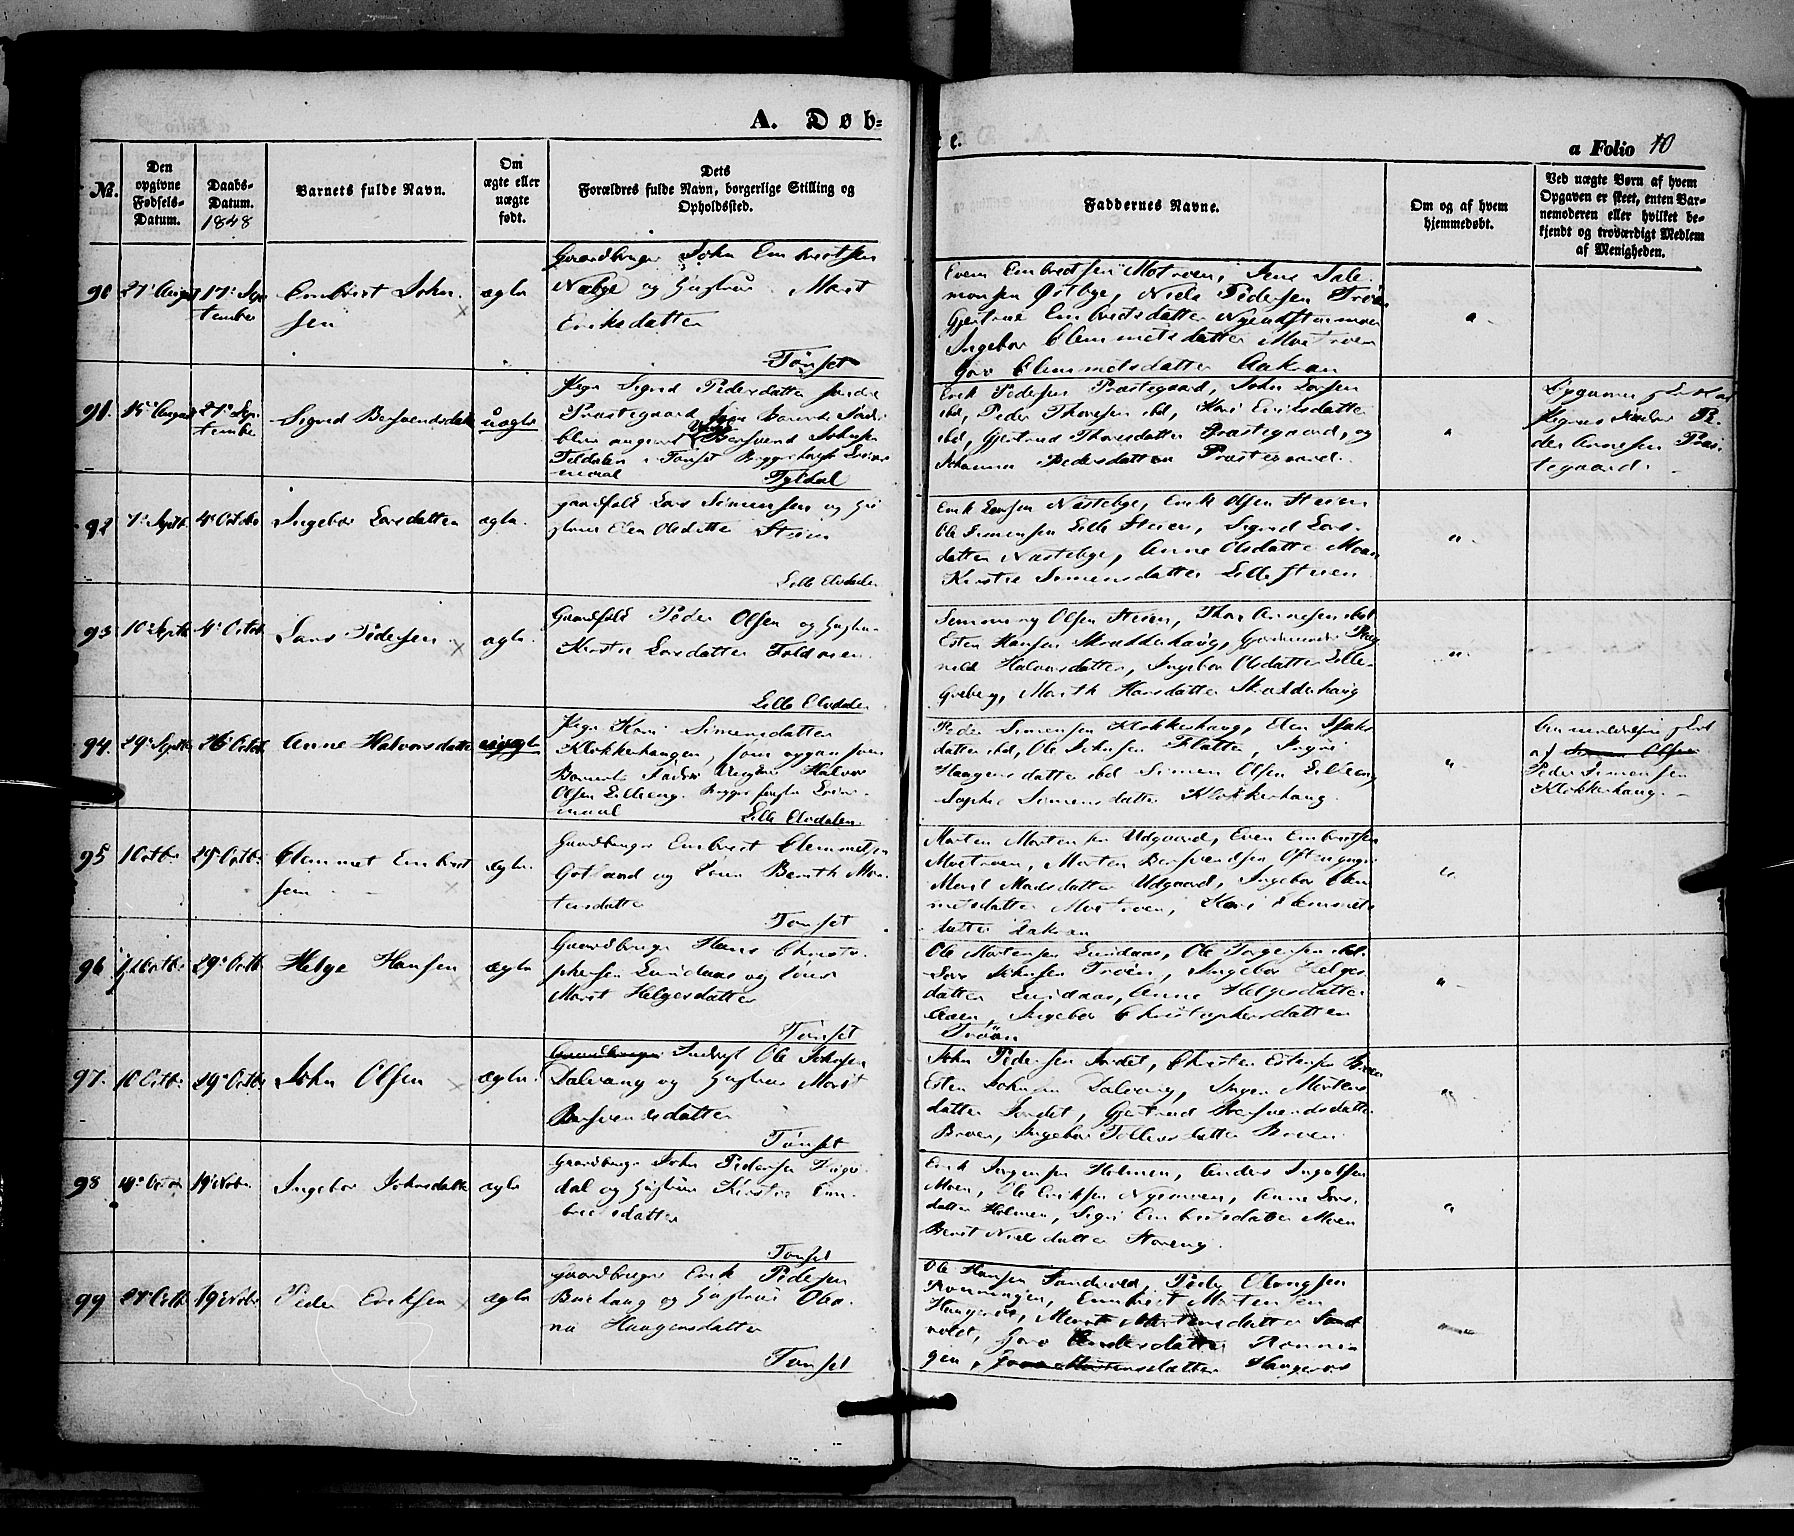 A. Døb-
te.
a Folio 10
No.
Den opgivne Fødsels-Datum.
Daabs-Datum.
1848
Barnets fulde Navn.
Om ægte eller uægte født.
Dets Forældres fulde Navn, borgerlige Stilling og Opholdssted.
Faddernes Navne.
Om og af hvem hjemmedøbt.
Ved uægte Børn af hvem Opgaven er skeet, enten Barnemoderen eller hvilket bekjendt og troværdigt Medlem af Menigheden.
90
27 August
17 Sep-
tember
Embret John-
sen
ægte
Gaardbruger John Embretsen
og Hustrue Marit
Eriksdatter
Tønset
Even Embretsen Motroen, Jens Sale-
monsen Østbye, Niels Pedersen Trøen
Gjertrud Embretsdatter
Ingebor Clemmetsdatter Motroen
Goro Clemmetsdatter Aakran
91.
15 August
27 Sep-
tember
Sigrid Bersvendsdatter
uægte
Pige Sigrid Pedersdatter
Præstegaard som Barnets Fader
blev angivet Bersvend Johnsen
Tildalen i Tønset Begges første Leier-
maal
Tyldal
Erik Pedersen Præstegaard, John Larsen
ibd, Peder Thoresen ibd, Kari Eriksdatter
ibd, Gjertrud Thoresdatter Præstegaard, og
Johanna Pedersdatter Præstegaard.
Opgaven skeet af
Pigens Fader Pe-
der Arnesen Præs-
tegaard.
92
7 Septb.
4 Octobr
Ingebor Larsdatter
ægte.
Gaardfolk Lars Simensen og Hu-
strue Elen Olsdatter Steien
Lille Elvdalen
Erik Larsen Næstebye, Erik Olsen Steien
Ole Simensen Lille Steien, Sigrid Lars-
datter Næstebye, Anne Olsdatter Moan
Kirstie Simensdatter Lille Steien
93
10 Septb
4 Octob
Lars Pedersen
ægte.
Gaardfolk Peder Olsen og Hustrue
Kirstie Larsdatter Foldmoen.
Lille Elvdalen
Simen Olsen Steien, Thor Arnesen ibd
Esten Hansen Skradderhaug, Gaardmands
Halvorsdatter, Ingebor Olsdatter Lille-
Grøberg, Marith Hansdatter Skradderhaug
94.
29 Septbr
26 Octob
Anne Halvorsdatter
uægte
Pige Kari Simensdatter
Klokkerhaugen, som opgav som
Barnets Fader Ungkar Halvor
Olsen Lilleeng. Begges første Leier-
maal
Lille Elvdalen.
Peder Simensen Klokkerhaug, Elen Isaks-
datter ibd, Ole Johnsen Flatten, Ingri
Haagensdatter ibd Simen Olsen Lilleeng
Sophie Simensdatter Klokkerhaug.
Anmeldelsen skeet
af Simen Olsen
Peder Simensen
Klokkerhaug.
95
1 Octbr
29 Octbr
Clemmet Embret-
sen
ægte.
Gaardbruger Embret Clemmetsen
Gotland og Kone Berith Mor-
tensdatter
Tønset
Morten Mortensen Udgaard, Even Embretsen
Motroen, Morten Bersvendsen
Marit Madsdatter Udgaard, Ingebor Clem-
metsdatter Motroen, Kari Clemmets-
datter Aakran
96
12 Octbr
29 Octb
Helge Hansen
ægte
Gaardbruger Hans Christo-
phersen Lundaas og Kone
Marit Helgesdatter
Tønset
Ole Mortensen Lundaas, Ole Jørgensen ibd.
Lars Johnsen Trøen, Ingebor Helges-
datter Lundaas, Anne Helgesdatter
Ingebor Christophersdatter
Trøen
97.
10 Octbr
29 Octbr
John Olsen
ægte.
Gaardbruger Inderst Ole Johnsen
Dalvang og Hustrue Marit
Bersvendsdatter
Tønset
John Pedersen Sandet, Christen Estensen Broen
Esten Johnsen Dalvang, Inger Mortens-
datter Sandet, Gjertrud Bersvendsdatter
Broen, Ingebor Tollevsdatter Broen
98
Octob
19 Novbr.
Ingebor Johnsdatter
ægte
Gaardbruger John Pedersen
dal og Hustrue Kirstie Em-
bretsdatter
Tønset
Erik Ingensen Holmen, Anders Ingolfsen
Moen, Ole Eriksen Nymoen, Anne Lars-
datter Holmen, Sigri Embretsdatter Moen
Berit Nielsdatter Storeng.
99
Octb
19 Novbr
Peder Eriksen
ægte
Gaardbruger Erik Pedersen
Bakhaug og Hustrue Olea-
na Haagensdatter
Tønset
Ole Hansen Sandvold, Peder
Ronningen, Embret Mortensen
Haugeraas, Marit Mortensdatter Sand-
vold, Goro Andersdatter Ronnin-
gen, Goro Mortensdatter Haugeraas